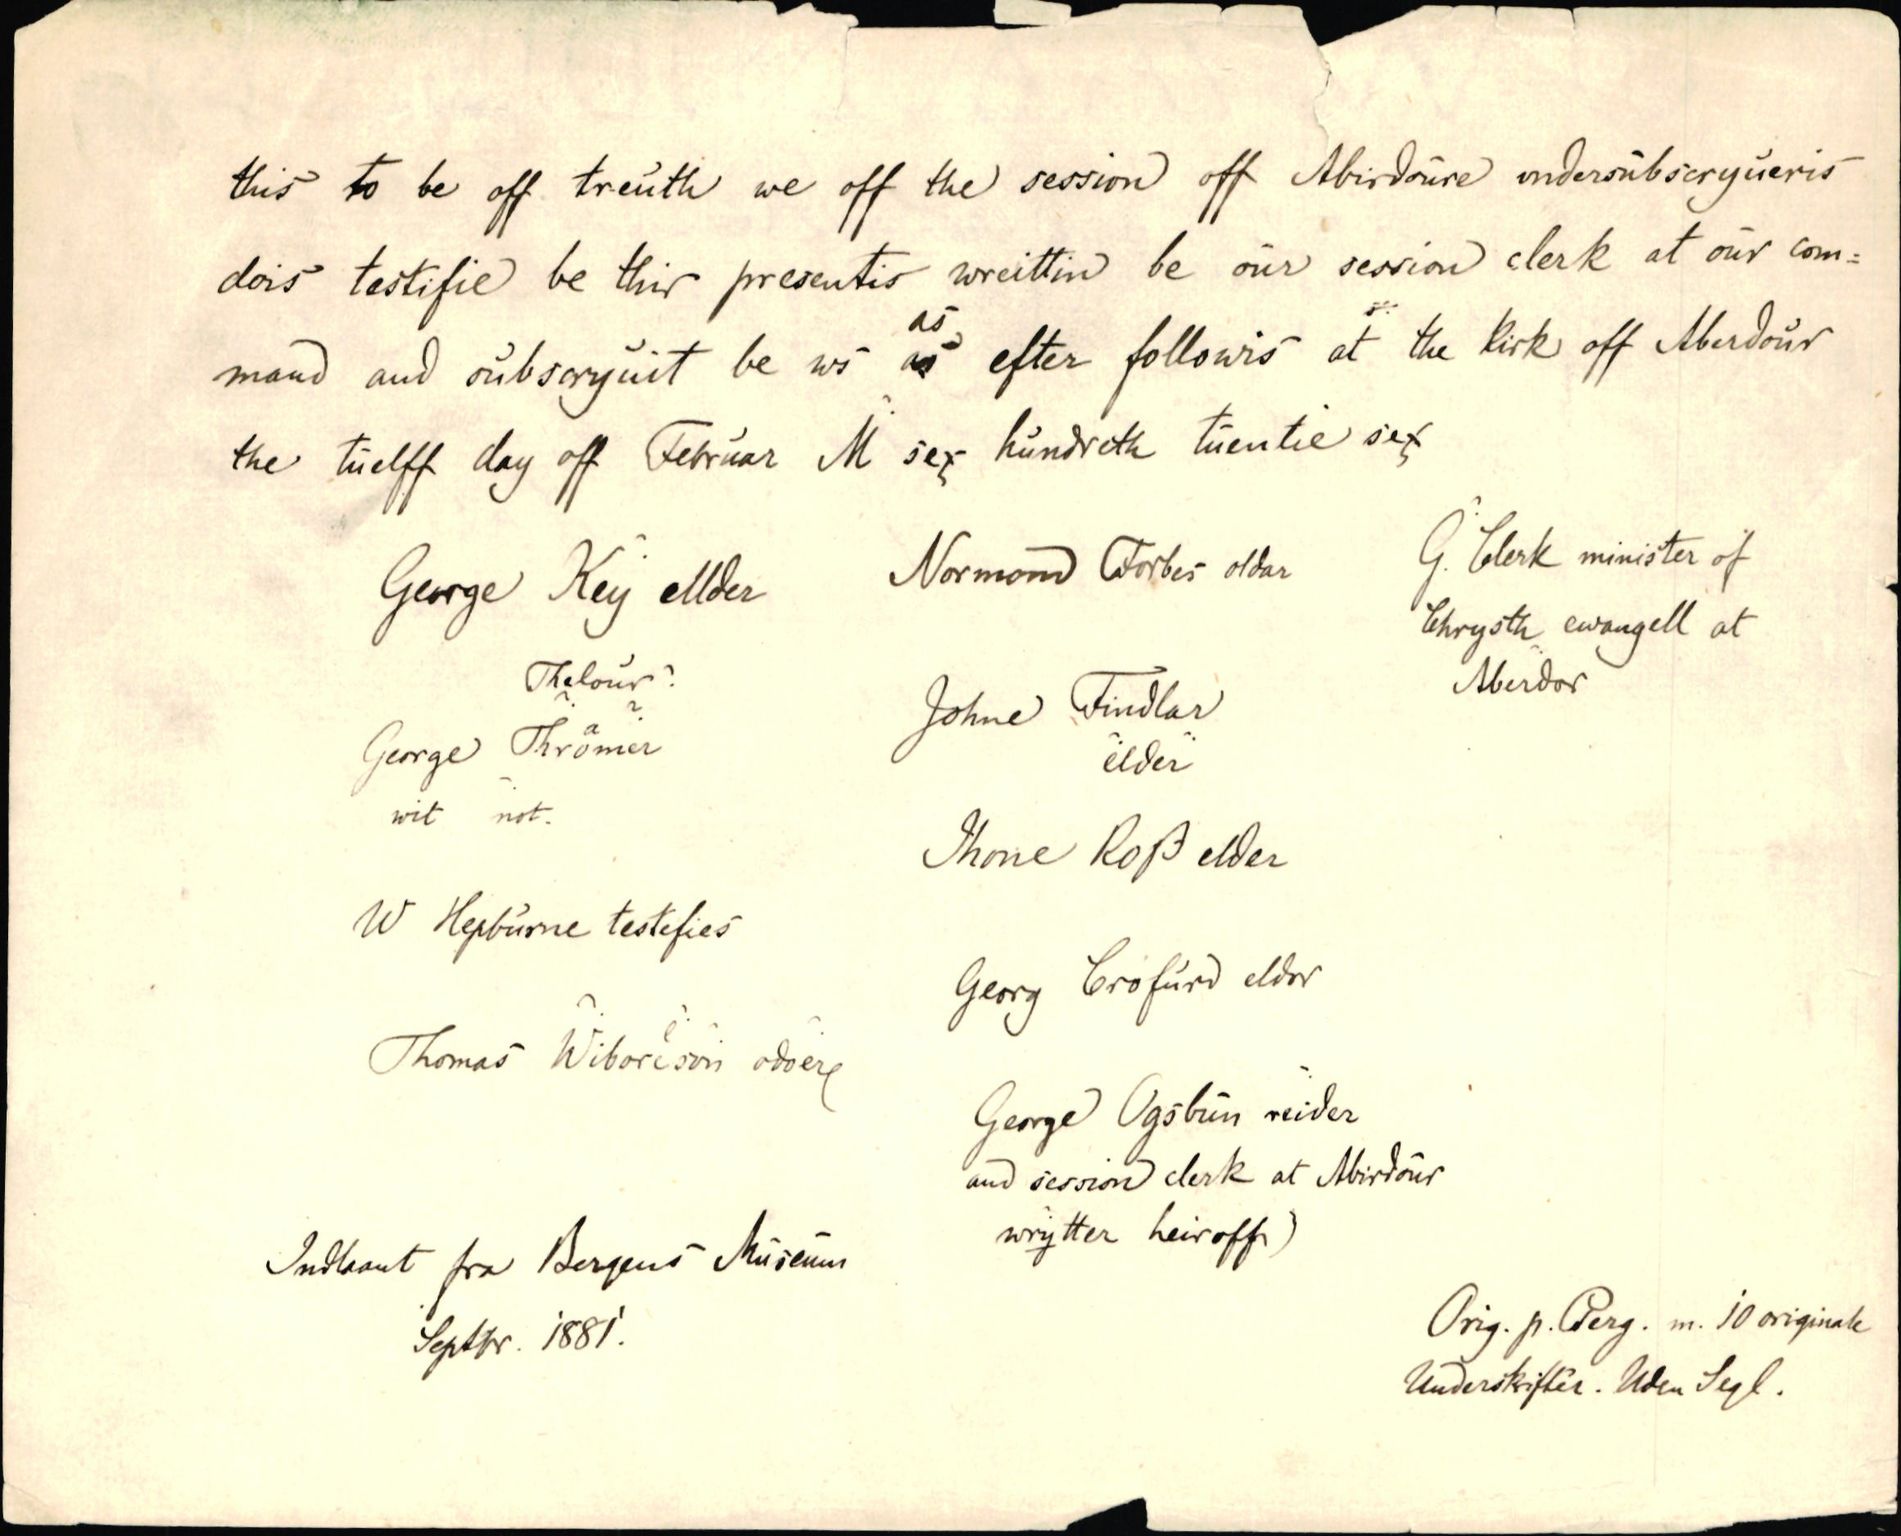 this to be off treuth we off the session off Abirdoure vndersubscryueris
dois testifie be thir presentis wreittin be our session clerk at our com=
mand and subscryuit be ws as efter followis at the kirk off Aberdour
the tuelff day off Februar M sex hundreth tuentie sex
George Key ellder
Normond Forbes oldar
G. Clerk minister of
Chrysth ewangell at
Aberdor
Thelour?
George Thromer
wit not.
Johne Findlar
elder
Jhone Roß elder
W Hepburne testefies
Georg Crofurd eldor
Thomas
George Ogsbun reider
and session clerk at Abirdour
wrytter heiroff)
Indlaant fra Bergens Museum
Septbr. 1881.
Orig. p. Perg. m. 10 originale
Underskrifter. Uden Segl.